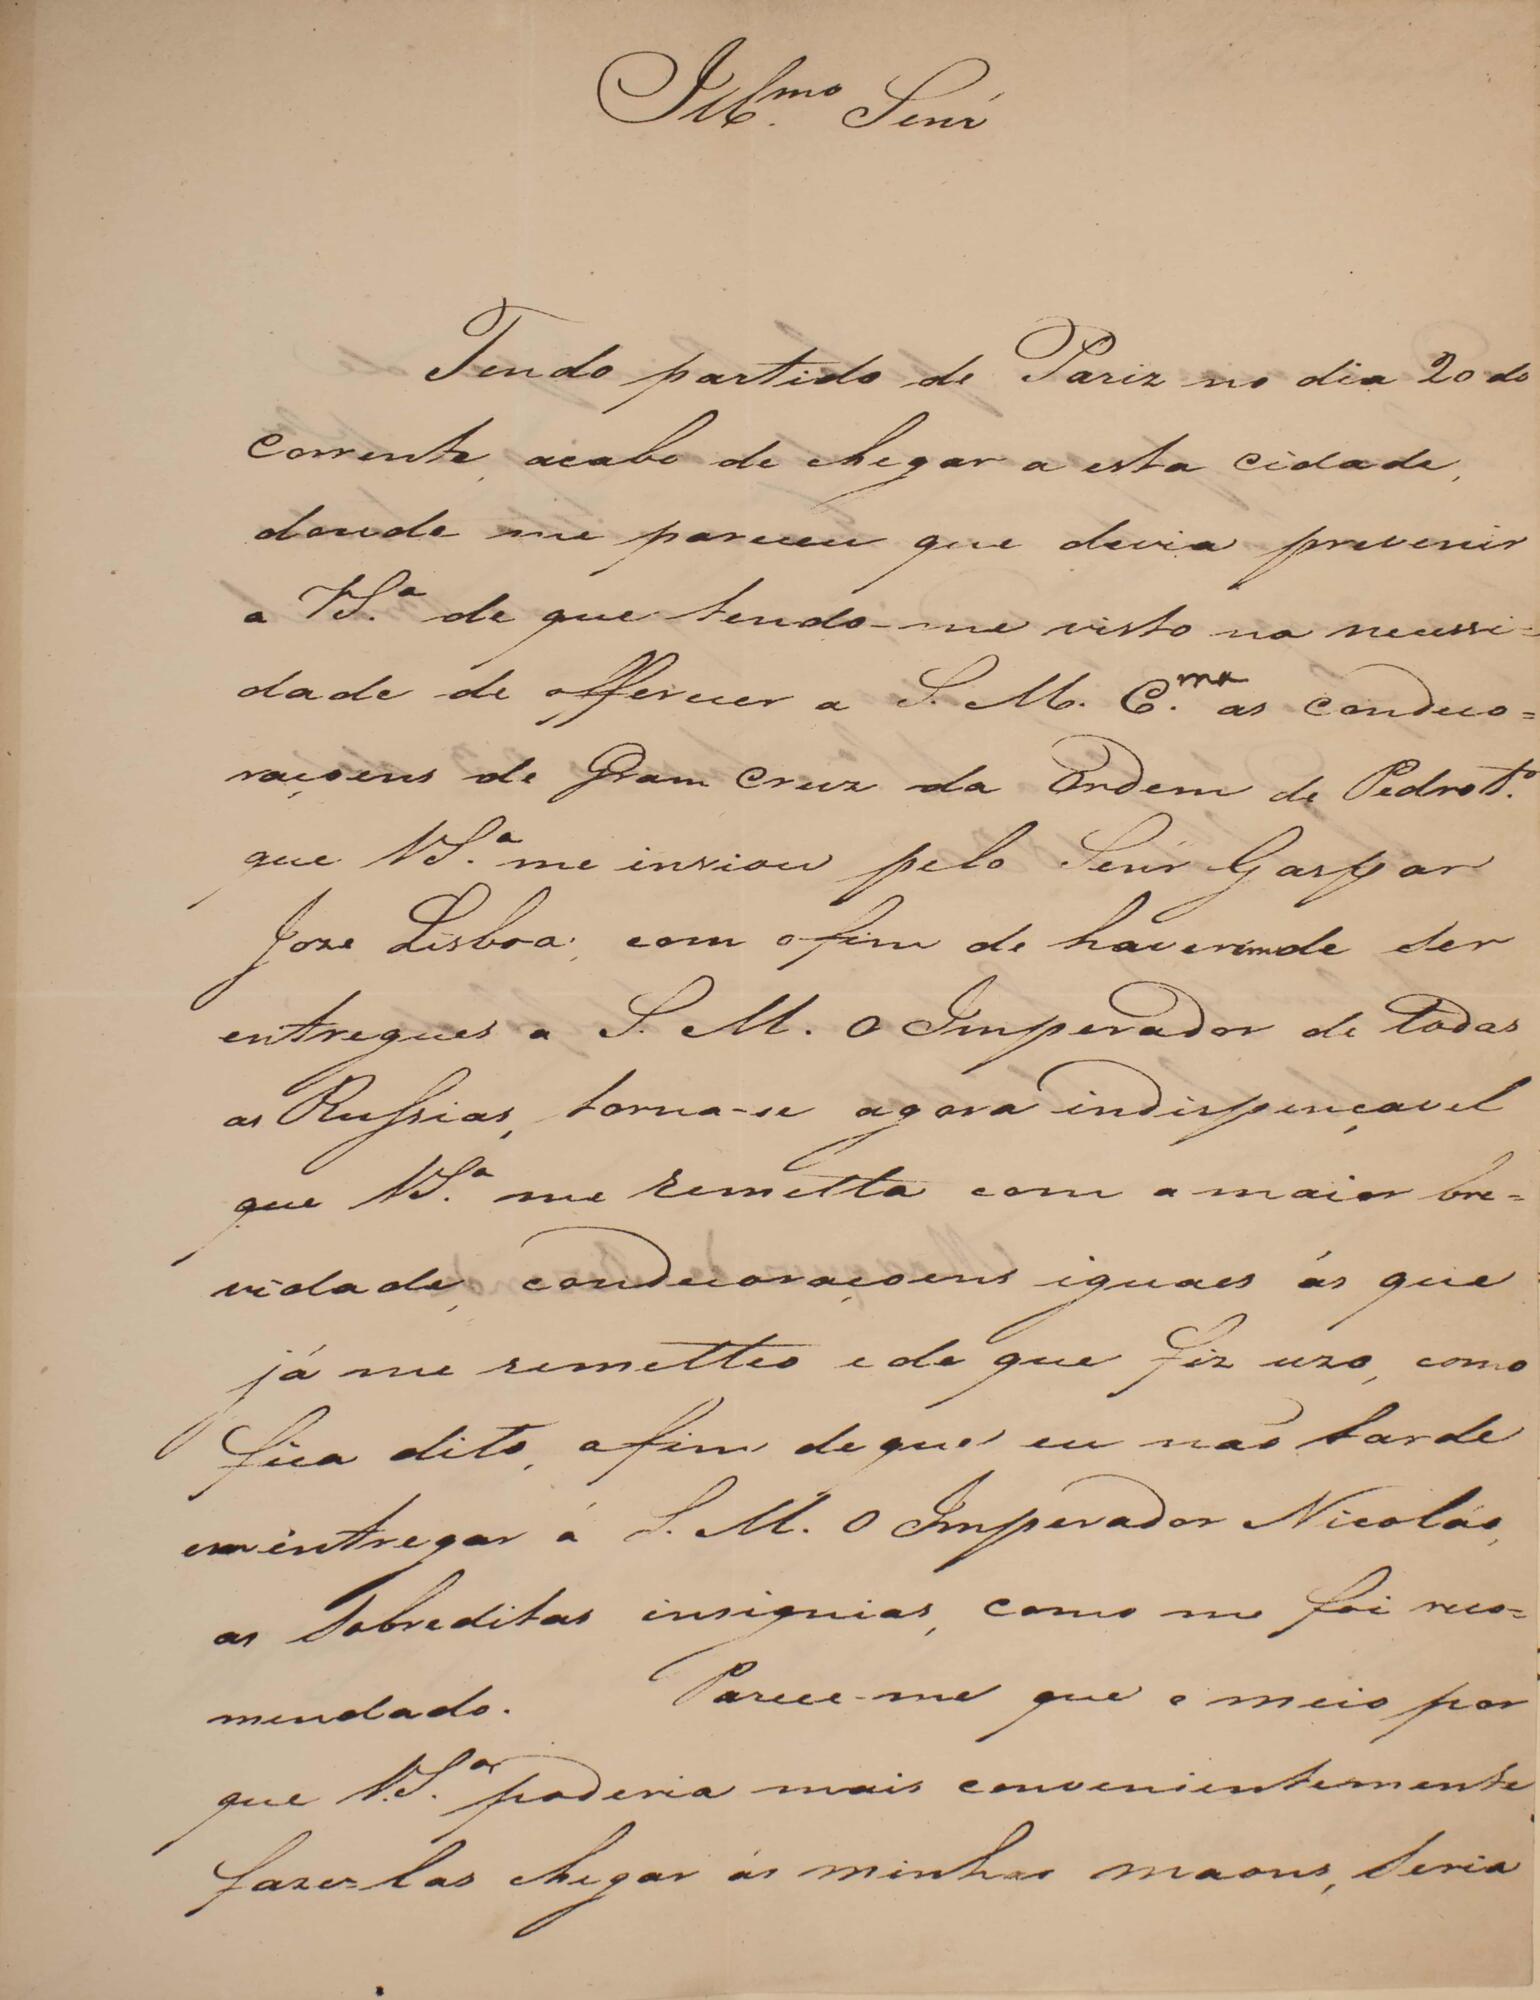 Ill.mo Senr
Tendo partido de Pariz no dia 20 do
corrente, acabo de chegar a esta cidade,
donde me pareceu que devia prevenir
a VS.a de que tendo-me visto na necessi=
dade de offerecer a S. M. C.ma as condeco=
raçoens de Gram Cruz da Ordem de Pedro 1.o
que VS.a me inviou pelo Senr Gaspar
Joze Lisboa, com o fim de haverem de ser
entregues a S. M. O Imperador de todas
as Russias, torna-se agora indispençavel
que VS.a me remetta com a maior bre=
vidade, condecoraçoens iguaes ás que
já me remetteo e de que fiz uzo, como
fica dito, a fim de que eu não tarde
em entregar á S. M. O Imperador Nicoláo,
as sobreditas insignias, como me foi reco=
mendado. Parece-me que o meio por
que V.S.a poderia mais convenientemente
fazer-las chegar ás minhas maons, seria